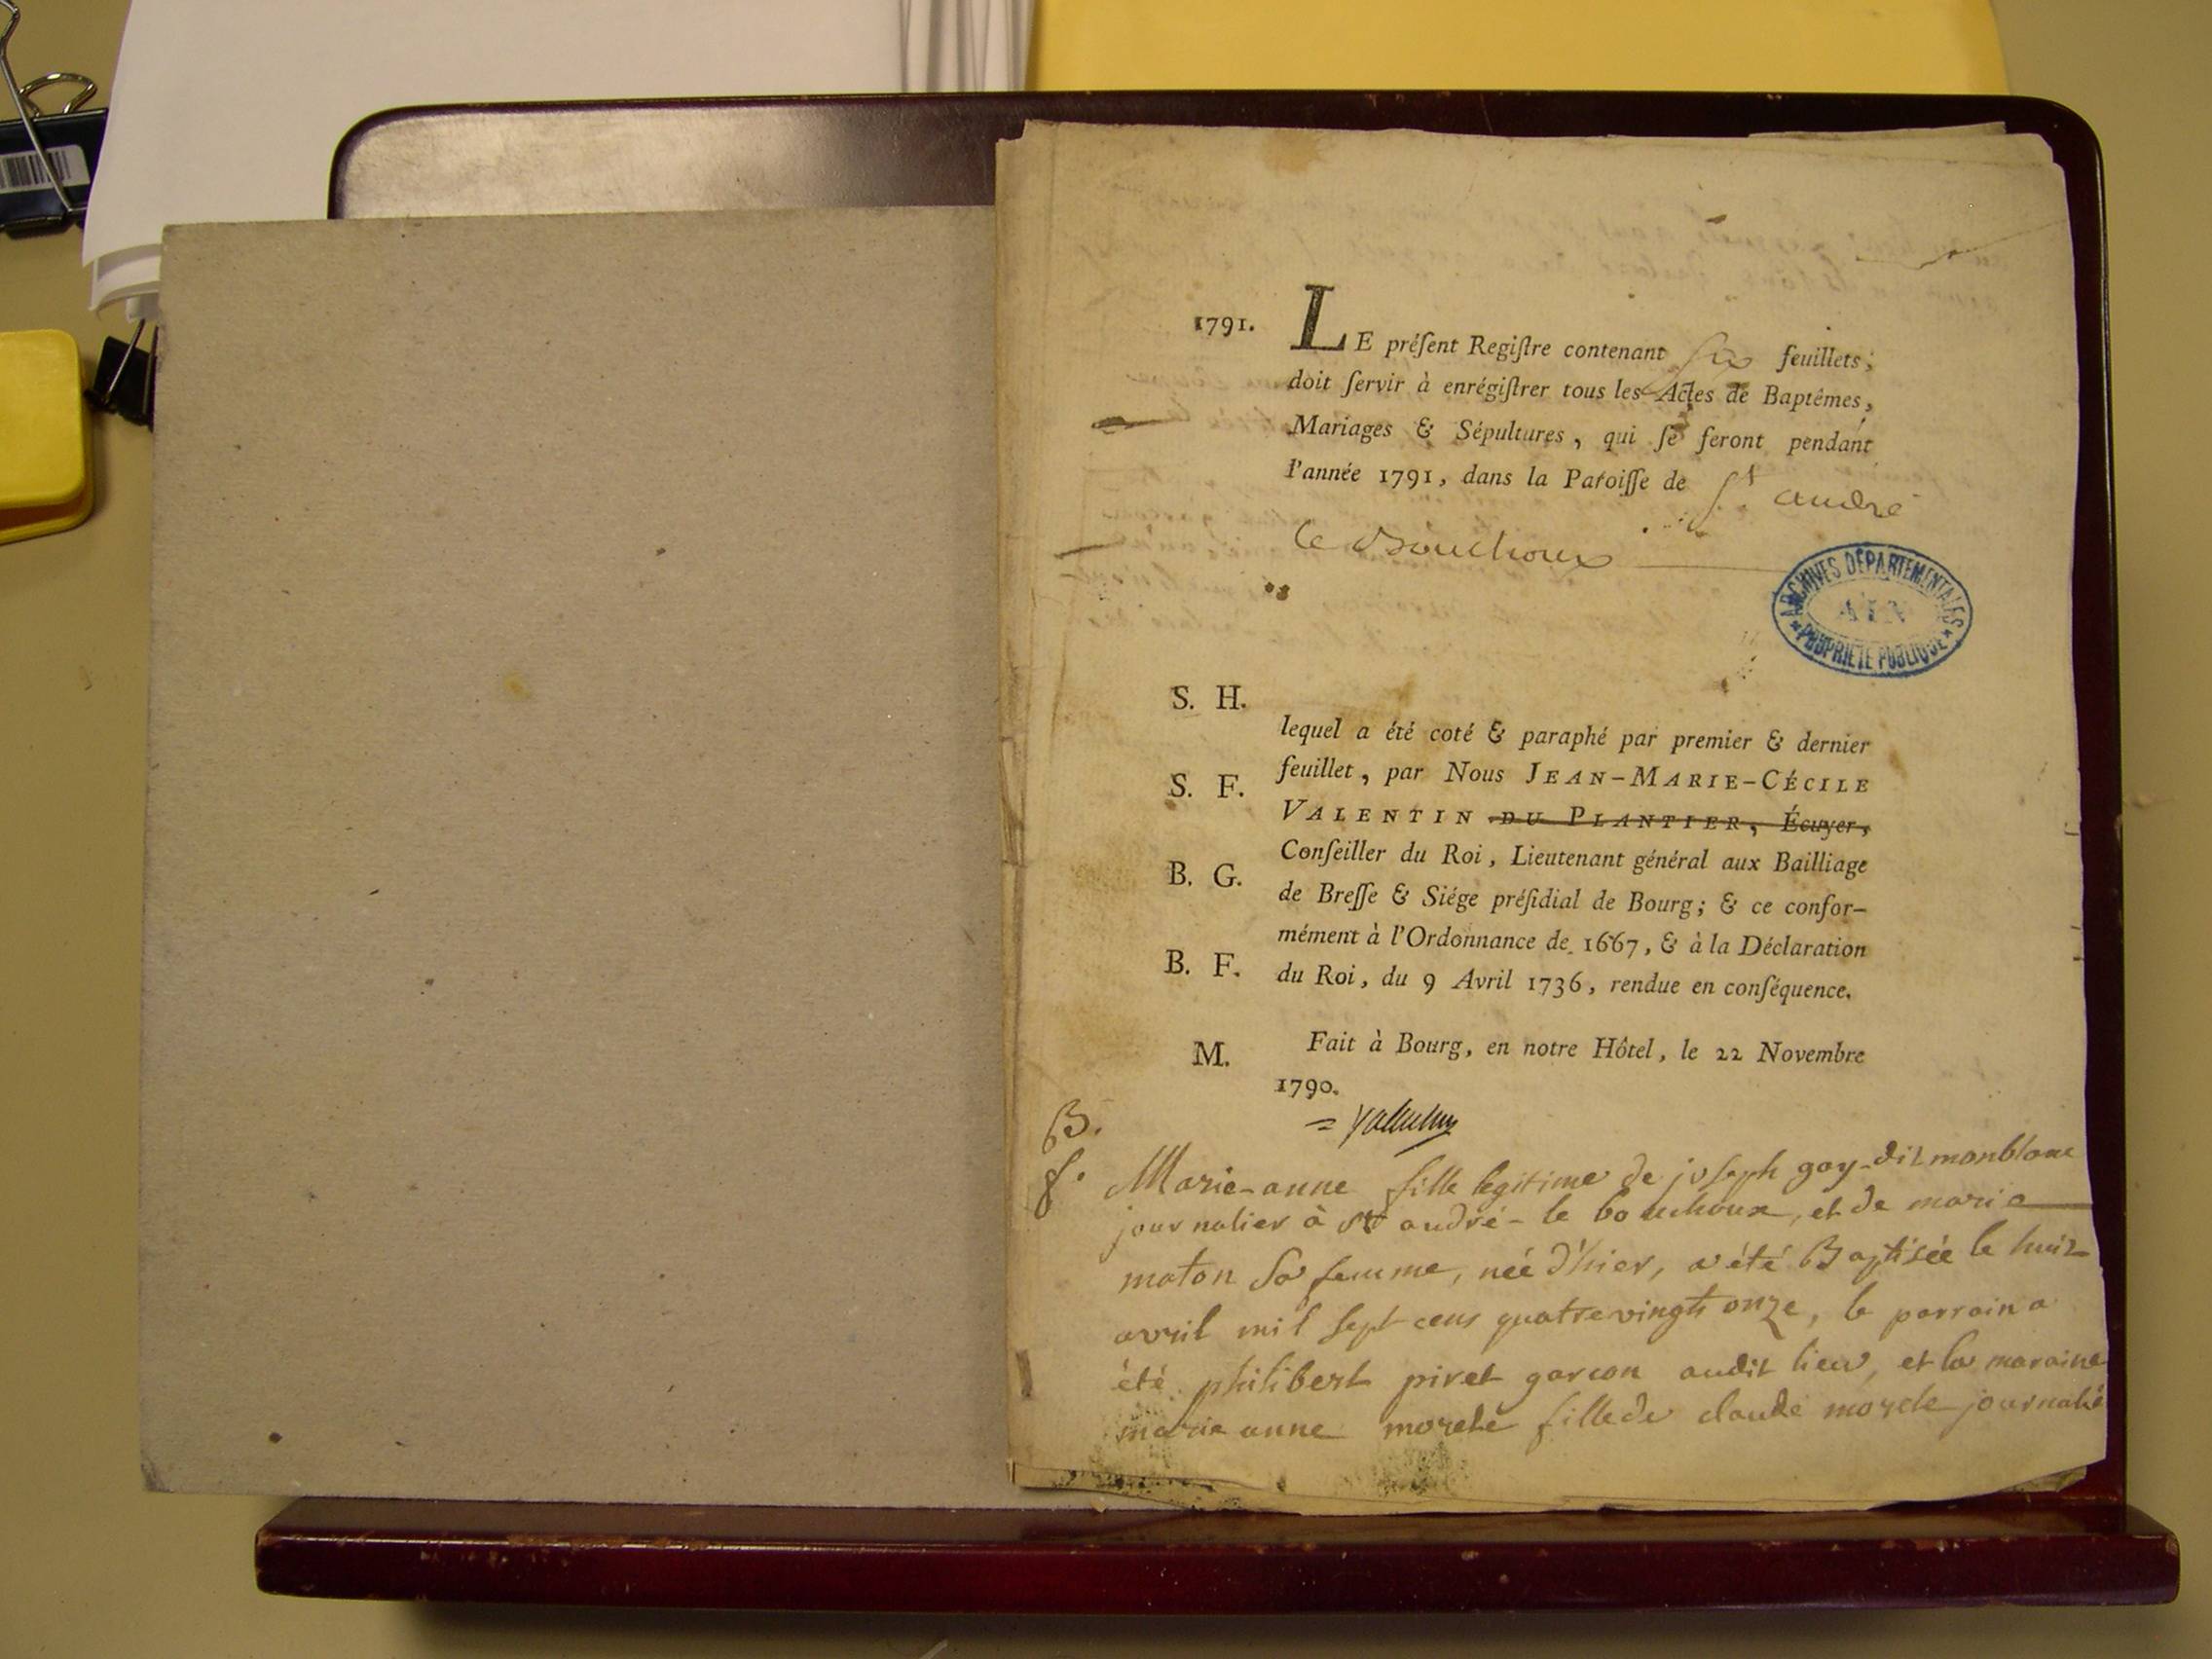 1791. LE préſent Regiſtre contenant six feuillets,
doit ſervir à enrégiſtrer tous les Actes de Baptêmes,
Mariages & Sépultures, qui ſe feront pendant
l'année 1791, dans la Paroiſſe de St andré
le Bouchoux
ARCHIVES DÉPARTEMENTALES
AIN
* PROPRIÉTÉ PUBLIQUE *
S. H.
lequel a été coté & paraphé par premier & dernier
feuillet, par Nous JEAN-MARIE-CÉCILE
S. F.
VALENTIN DU PLANTIER, Écuyer,
Conſeiller du Roi, Lieutenant général aux Bailliage
B. G.
de Breſſe & Siége préſidial de Bourg; & ce confor-
mément à l'Ordonnance de 1667, & à la Déclaration
B. F.
du Roi, du 9 Avril 1736, rendue en conſéquence.
M.
Fait à Bourg, en notre Hôtel, le 22 Novembre
1790.
= Valentin
B.
f. Marie-anne fille legitime de joseph gay-dit monblanc
journalier à st andré-le bouchoux, et de marie
maton sa femme, néé d'hier, a été Baptisée le huit
avril mil sept cens quatrevingts onze, le parrain a
été philibert piret garcon audit lieu, et la maraine
marie anne morele fille de claude morele journalié